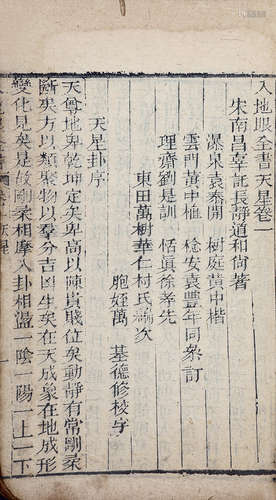 入地眼全書天星卷一
宋南昌辜託長靜道和尚著
瀑泉袁泰開 樹庭黃中楷
雲門黃中樵 稔安袁豐年同叅訂
理齋劉是訓 恬滇徐孝先
東田萬樹華仁村氏編次
胞姪萬 基德修校字
天星卦序
天尊地卑乾坤定矣卑高以陳貴賤位矣動靜有常剛柔
斷矣方以類聚物以羣分吉凶生矣在天成象在地成形
變化見矣是故剛柔相摩八卦相盪一陰一陽一上一下